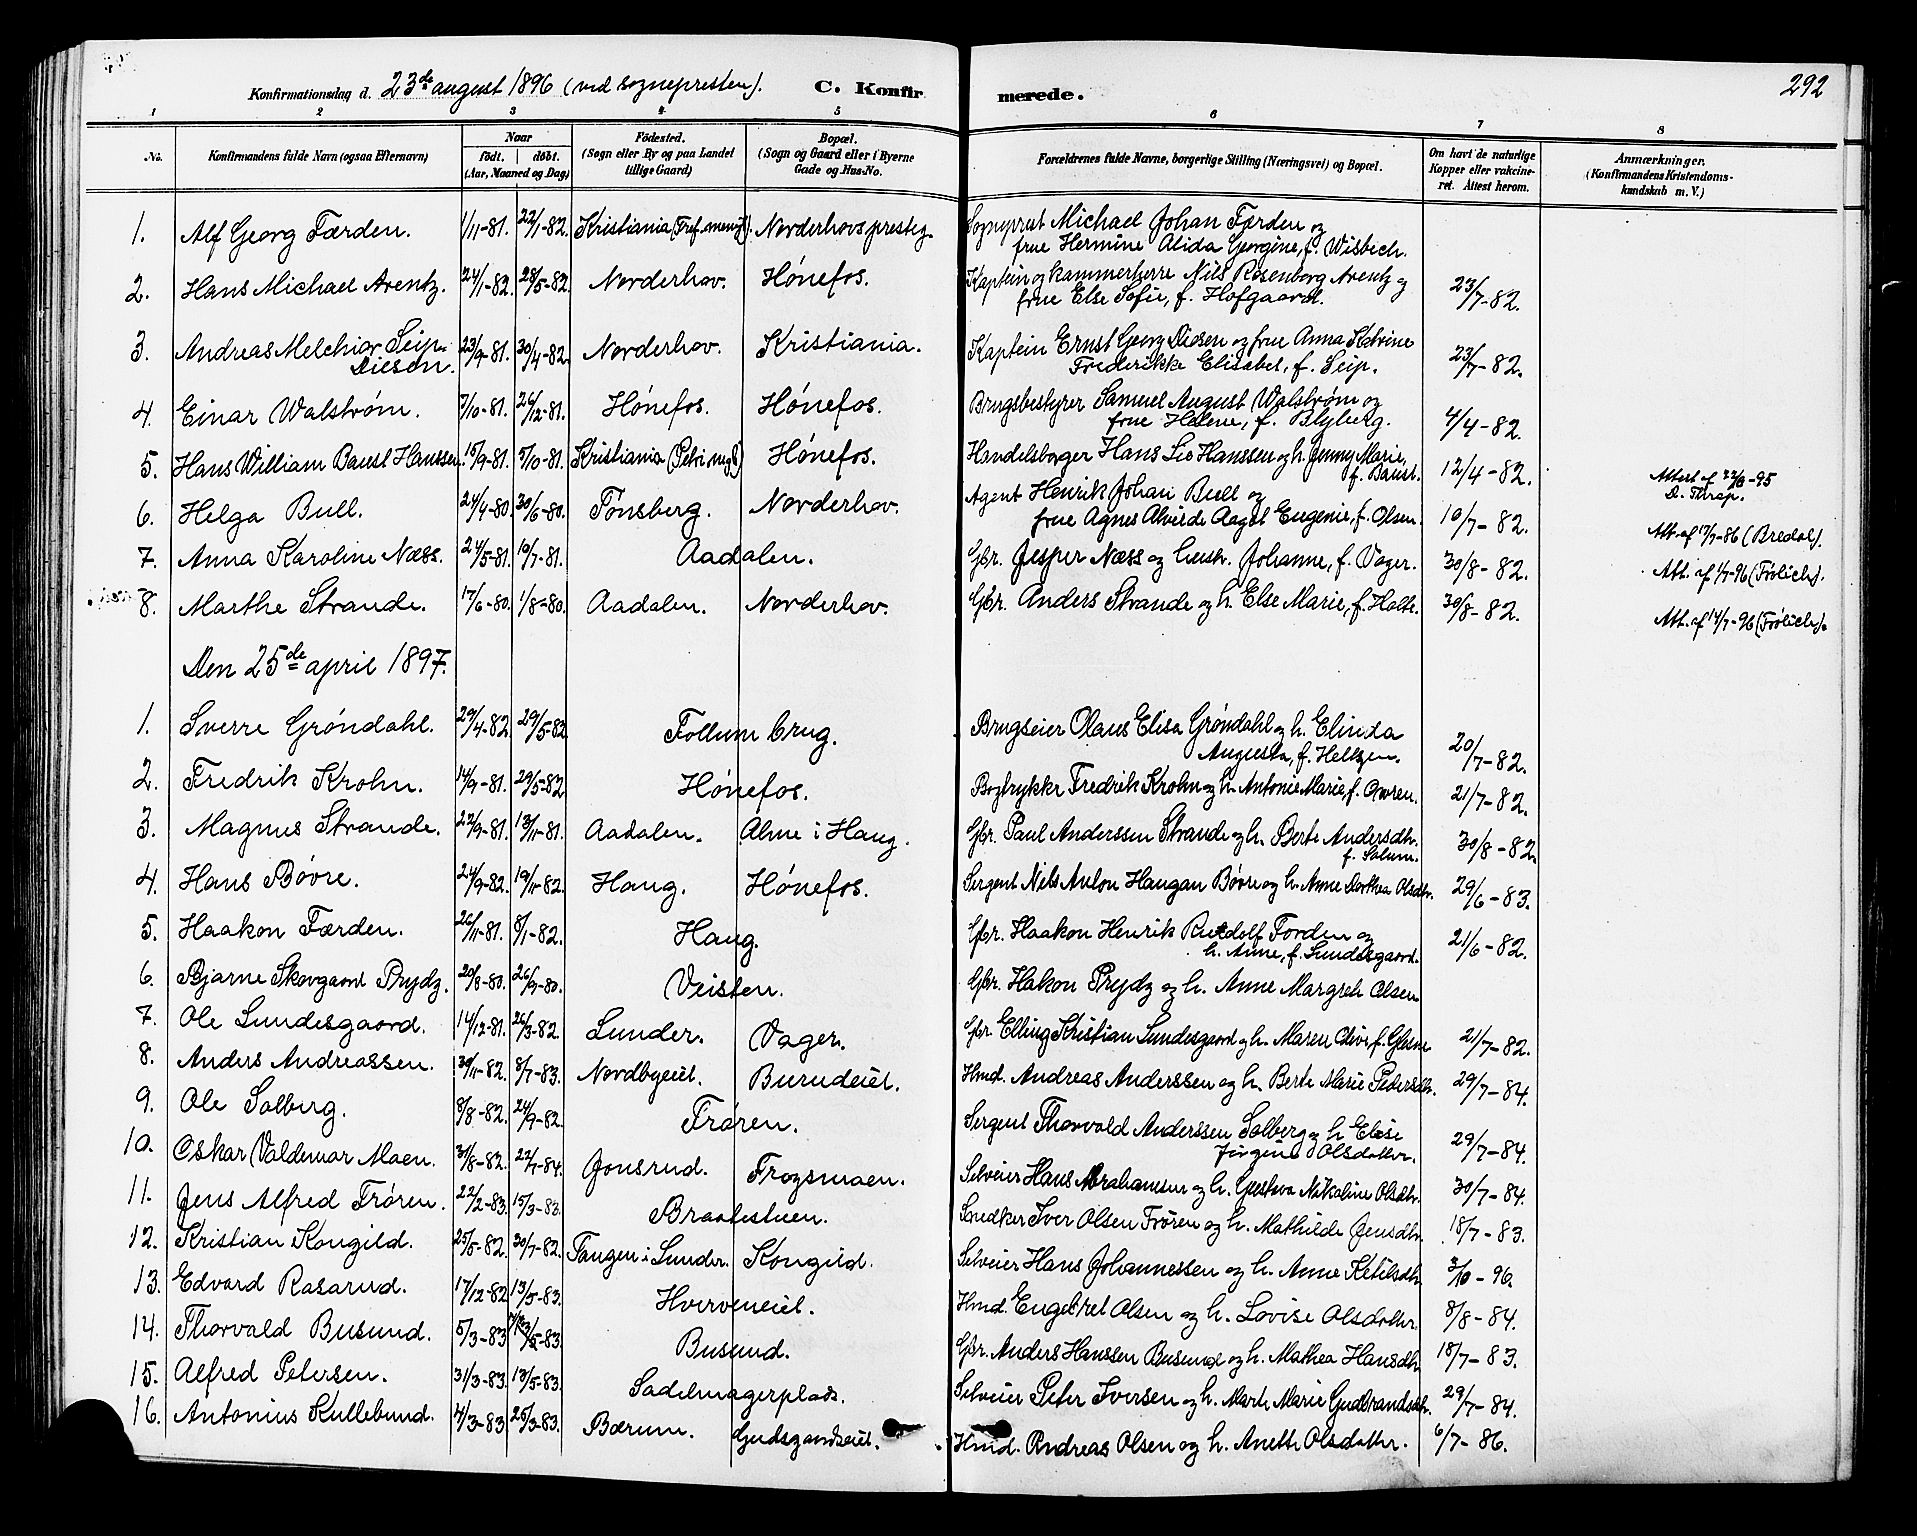 292
Konfirmationsdag d. 23de august 1896 (ved sognepresten). C. Konfirmerede.
1 2 3 4 5 6 7 8
No. Konfirmandens fulde Navn (ogsaa Efternavn) Naar født. døbt. (Aar, Maaned og Dag) Fødested. (Sogn eller By og paa Landet tillige Gaard) Bopæl. (Sogn og Gaard eller i Byerne Gade og Hus-No. Forældrenes fulde Navne, borgerlige Stilling (Næringsvei) og Bopæl. Om havt de naturlige Kopper eller vaccineret. Attest herom. Anmærkninger. (Konfirmandens Kristendomskundskab m. V.)
1. Alf Georg Færden. 1/11-81. 22/1-82. Kristiania (Tref. menigh). Norderhovs presteg. Sogneprest Michael Johan Færden og
frue Hermine Alida Georgine, f. Wisbech.
2. Hans Michael Arentz. 24/1-82. 28/5-82. Norderhov. Hönefos. Kaptein og kammerherre Nils Rosenborg Arentz og
frue Else Sofie, f. Hofgaard. 23/7-82.
3. Andreas Melchior Seip Diesen. 23/9-81. 30/4-82. Norderhov. Kristiania. Kaptein Ernst Georg Diesen og frue Anna Katrine
Frederikke Elisabet, f. Seip. 23/7-82.
4. Einar Walström. 7/10-81. 26/12-81. Hönefos. Hönefos. Brugsbestyrer Samuel August Walström og
frue Helene, f. Blyberg. 4/4-82.
5. Hans William Baust Hanssen. 15/9-81. 5/10-81. Kristiania (Petri mgh) Hönefos. Handelsborger Hans Lie Hanssen og h. Jenny Marie,
f. Baust. 12/4-82. Attest af 22/8-95
D. Thrap.
6. Helga Bull. 24/4-80. 30/6-80. Tönsberg. Norderhov. Agent Henrik Johan Bull og
frue Agnes Alvilde Aagot Eugenie, f. Olsen. 10/7-82. Att. af 17/7-86 (Bredal).
7. Anna Karoline Næss. 24/5-81. 10/7-81. Aadalen. Gbr. Jesper Næss og hustr. Johanne, f. Vager. 30/8-82. Att. af 1/7-96 (Frölich).
8. Marthe Strande. 17/6-80. 1/8-80. Aadalen. Norderhov. Gbr. Anders Strande og h. Else Marie, f. Holte. 30/8-82. Att. af 14/7-96 (Frölich).
Den 25de april 1897.
1. Sverre Gröndahl. 29/4-82. 29/5-82. Follum brug. Brugseier Olaus Elisa Gröndahl og h. Elinda
Augusta, f. Heltzen. 20/7-82.
2. Fredrik Krohn. 14/9-81. 29/5-82. Hönefos. Bogtrykker Fredrik Krohn og h. Antonie Marie, f. Owren. 21/7-82.
3. Magnus Strande. 22/9-81. 13/11-81. Aadalen. Alme i Haug. Gbr. Paul Anderssen Strande og h. Berte Andersdtr.
f. Solum. 30/8-82.
4. Hans Bövre. 24/9-82. 19/11-82. Haug. Hönefos. Sergent Nels Anton Haugan Bövre og h. Anne Dorthea Olsdtr. 29/6-83.
5. Haakon Færden. 26/11-81. 8/1-82. Haug. Gbr. Haakon Henrik Rudolf Forden og
h. Anne, f. Lundesgaard. 21/6-82.
6. Bjarne Skovgaard Prydz. 20/8-80. 26/9-80. Veisten. Gbr. Hakon Prydz og h. Anne Margreth Olsen
7. Ole Lundesgaard. 14/12-81. 26/3-82. Lunder. Vager. Gbr. Elling Kristian Lundesgaard og h. Maren Olive, f. Glesne 21/7-82.
8. Anders Andreassen. 30/11-82. 8/7-83. Nordbyeiet. Burudeiet. Hmd. Andreas Anderssen og h. Berte Marie Pedersdtr. 29/7-84.
9. Ole Solberg. 8/8-82. 24/9-82. Frören. Sergent Thorvald Anderssen Solberg og h. Elise
Jörgine Olsdatter. 29/7-84.
10. Oskar Valdemar Moen. 31/8-82. 22/7-84. Gonsrud. Frogsmoen. Selveier Hans Abrahamsen og h. Gustava Nikoline Olsdtr. 30/7-84.
11. Jens Alfred Frören. 22/2-83. 15/3-83. Braatestuen. Snedker Iver Olsen Frören og h. Mathilde Jensdtr. 18/7-83.
12. Kristian Kongild. 25/5-82. 30/7-82. Tangen i Lunder. Kongild. Selveier Hans Johannessen og h. Anne Ketilsdtr. 3/10-96.
13. Edvard Rasarud. 17/12-82. 13/5-83. Hverveneiet. Hmd. Engebret Olsen og h. Lovise Olsdatter. 8/8-84.
14. Thorvald Busund. 5/3-83. /5-83. Busund. Gbr. Anders Hanssen Busund og h. Mathea Hansdtr. 18/7-83.
15. Alfred Petersen. 31/3-83. 13/5-83. Sadelmagerplads. Selveier Peter Iversen og h. Marte Marie Gudbrandsdtr. 29/7-84.
16. Antonius Kullebund. 4/3-83. 25/3-83. Bærum. Gudsgaardseiet. Hmd. Andreas Olsen og h. Anette Olsdatter. 6/7-86.